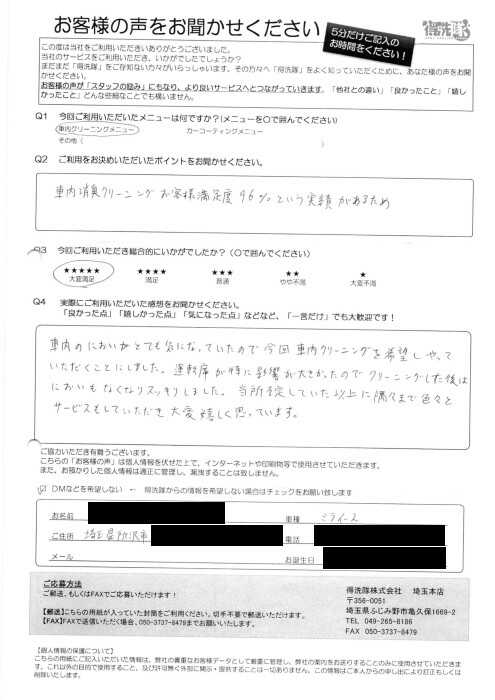 お客様の声をお聞かせください
5分だけご記入の
お時間をください!
得洗隊
この度は当社をご利用いただきありがとうございました。
当社のサービスをご利用いただき、いかがでしたでしょうか?
まだまだ「得洗隊」をご存知ない方々がいらっしゃいます。その方々へ「得洗隊」をよく知っていただくために、あなた様の声をお聞かせください。
お客様の声が「スタッフの励み」にもなり、より良いサービスへとつながっていきます。「他社との違い」「良かったこと」「嬉しかったこと」どんな些細なことでも構いません。
Q1 今回ご利用いただいたメニューは何ですか?(メニューを○で囲んでください)
車内クリーニングメニュー カーコーティングメニュー
その他( )
Q2 ご利用をお決めいただいたポイントをお聞かせください。
車内消臭クリーニング お客様満足度96%という実績があるため
Q3 今回ご利用いただき総合的にいかがでしたか?(○で囲んでください)
★★★★★ ★★★★ ★★★ ★★ ★
大変満足 満足 普通 やや不満 大変不満
Q4 実際にご利用いただいた感想をお聞かせください。
「良かった点」「嬉しかった点」「気になった点」などなど、「一言だけ」でも大歓迎です!
車内のにおいがとても気になっていたので今回車内クリーニングを希望しやって
いただくことにしました。運転席が特に影響が大きかったのでクリーニングした後は
においもなくなりスッキリしました。当所予定していた以上に隅々まで色々と
サービスもしていただき大変嬉しく思っています。
ご協力いただき有難うございます。
こちらの「お客様の声」は個人情報を伏せた上で、インターネットや印刷物等で使用させていただきます。
また、お預かりした個人情報は適正に管理し、漏洩することは致しません。
DMなどを希望しない ← 得洗隊からの情報を希望しない場合はチェックをお願い致します
お名前 車種 ミライース
ご住所 埼玉県所沢市 電話
メール お誕生日
ご応募方法
ご郵送、もしくはFAXでご応募いただけます!
【郵送】こちらの用紙が入っていた封筒をご利用ください。切手不要で郵送いただけます。
【FAX】FAXで送信いただく場合、050-3737-8479までお願いいたします。
得洗隊株式会社 埼玉本店
〒356-0051
埼玉県ふじみ野市亀久保1669-2
TEL 049-265-8186
FAX 050-3737-8479
【個人情報の保護について】
こちらの用紙にご記入いただいた情報は、弊社の貴重なお客様データとして厳重に管理し、弊社の案内をお送りすることのみに使用させていただきます。これ以外の目的で使用すること、及び許可無く外部に開示・提供することは一切ありません。この情報はご本人からの申し出により訂正もしくは削除いたします。